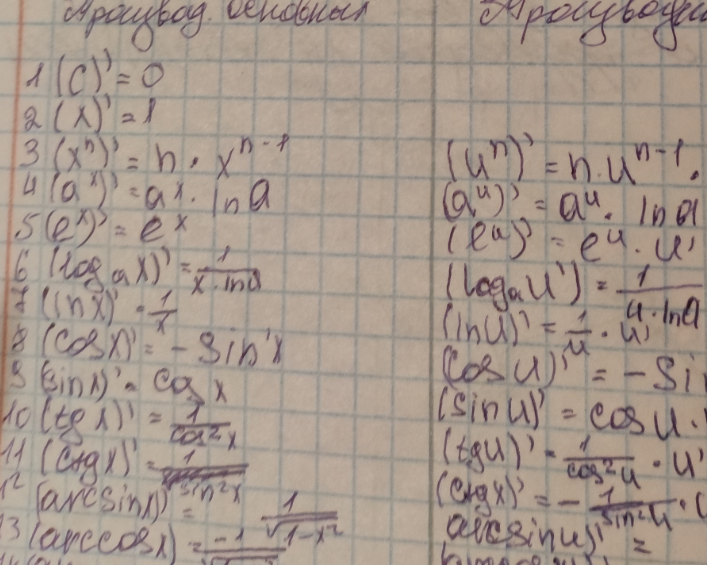 Производ. основных
1 (c)' = 0
2 (x)' = 1
3 (xⁿ)' = n · xⁿ⁻¹
4 (aˣ)' = aˣ · ln a
5 (eˣ)' = eˣ
6 (logₐx)' = 1/(x · ln a)
7 (ln x)' = 1/x
8 (cos x)' = - sin'x
9 (sin x)' = cos x
10 (tg x)' = 1/cos²x
11 (ctg x)' = 1/sin²x
12 (arcsin x)' = 1/√(1-x²)
13 (arccos x) = -1/√
(uⁿ)' = n · uⁿ⁻¹ ·
(aᵘ)' = aᵘ · ln a
(eᵘ)' = eᵘ · u'
(logₐu') = 1/(u · ln a)
(ln u)' = 1/u · u'
(cos u)' = - si
(sin u)' = cos u ·
(tg u)' = 1/cos²u · u'
(ctg x)' = - 1/sin²u ·
arcsin u)' =